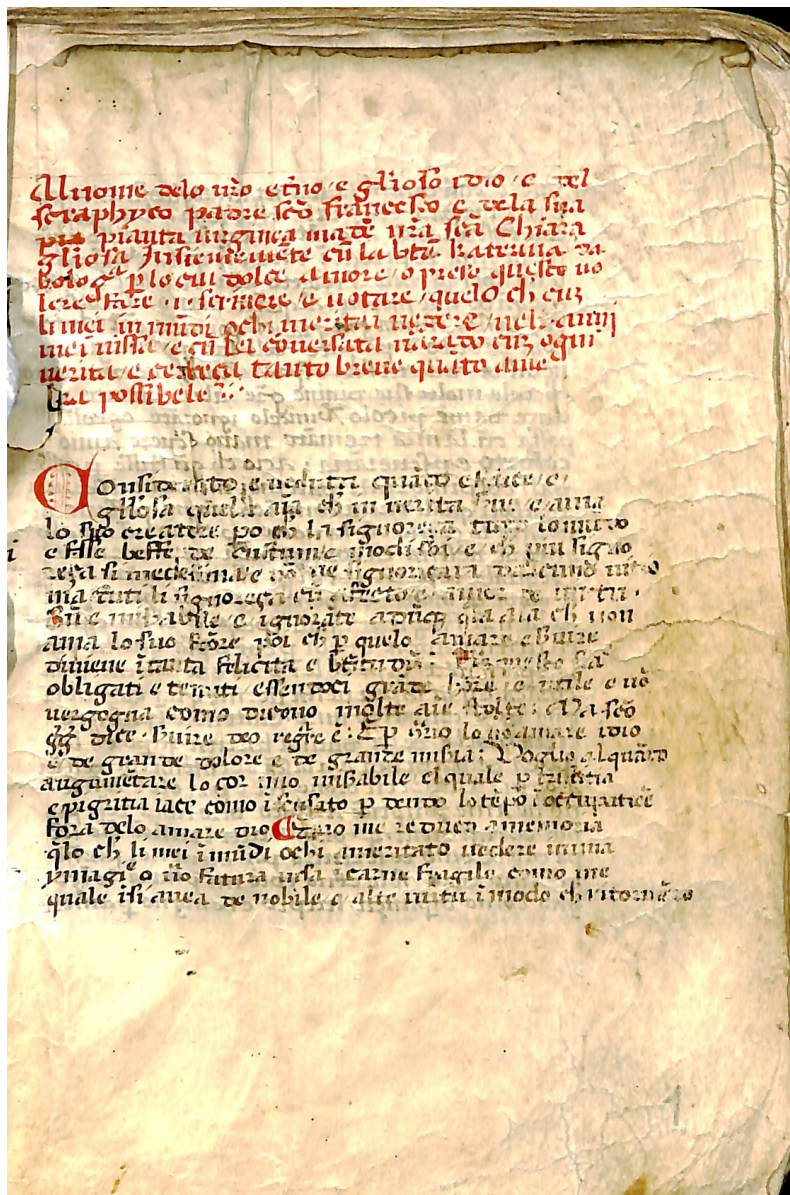 Al nome delo nr̃o etño e gl̃ioso idio e del
seraphyco padre scõ francesco e dela sua
pianta virginea madẽ nr̃a scã Chiara
gl̃iosa Insiememẽte cũ la btã Katerina da
bologª ꝑ lo cui dolce amore o preso questo vo
lere fare scrivere e notare quelo ch̃ cuz
li mei inmũdi ochi meritai vedere neli anni
mei vissa e cũ lei conversata narãdo cuz ogni
verita e certeça tanto breve quãto a me
sera possibele
Considerato e veduta quãto e felice e
gl̃iosa quella aĩa ch̃ in verita serve e ama
lo suo creatore po ch̃ la signoreza tuto lo mũdo
e fasse beffe de custumi e modi soi e ch̃ piu signo
reza si medesima e nõ ne signorezata da
ma tuti li signoreça cũ affeto e amor de virtu
Bñe mirabile e ignorãte adũcꝫ q̃la aĩa ch̃ non
ama lo suo fatore poi ch̃ ꝑ quelo amare e servire
diviene ĩ tanta felicita e btitudĩe
obligati e tenuti essendoci grãde honore e utile e nõ
vergogna como dicono molte aĩe stolte Ma scõ
gg̃ dice Servire deo regñe ẽ E ꝑ c̃rio lo nõ amare idio
ẽ de grande dolore e de grande misia Voglio alquãto
augumẽtare lo cor mio misabile el quale ꝑ tristitia
e pigritia iace como ĩsensato ꝑdendo lo tẽpo ĩ occupatiõe
fora delo amare dio Et ꝑo me reduco a memoria
q̃lo ch̃ li mei ĩmũdi ochi a meritato vedere in una
ymagiẽ o vr̃o fatura visa ĩ carne fragile como me
quale ĩ si avea de nobile e alte virtu ĩ modo ch̃ ritornãro
1